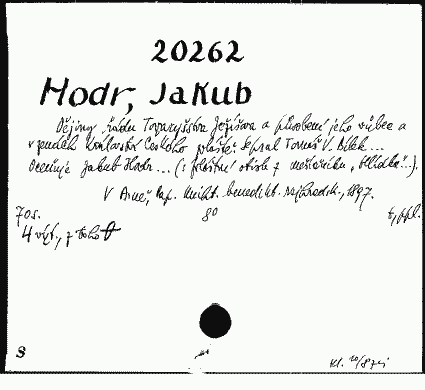 20262
Hodr, Jakub
Dějiny řádu Tovaryšstva Ježíšova a působení jeho vůbec a
v zemích království Českého zvláště. Sepsal Tomáš V. Bílek...
Oceňuje Jakub Hodr... (: zvláštní otisk z měsíčníku „Hlídka":).
V Brně, Pap. kniht. benedikt. rajhradsk., 1897.
70 s. 8° 
4 výt., z toho
8
Kl.